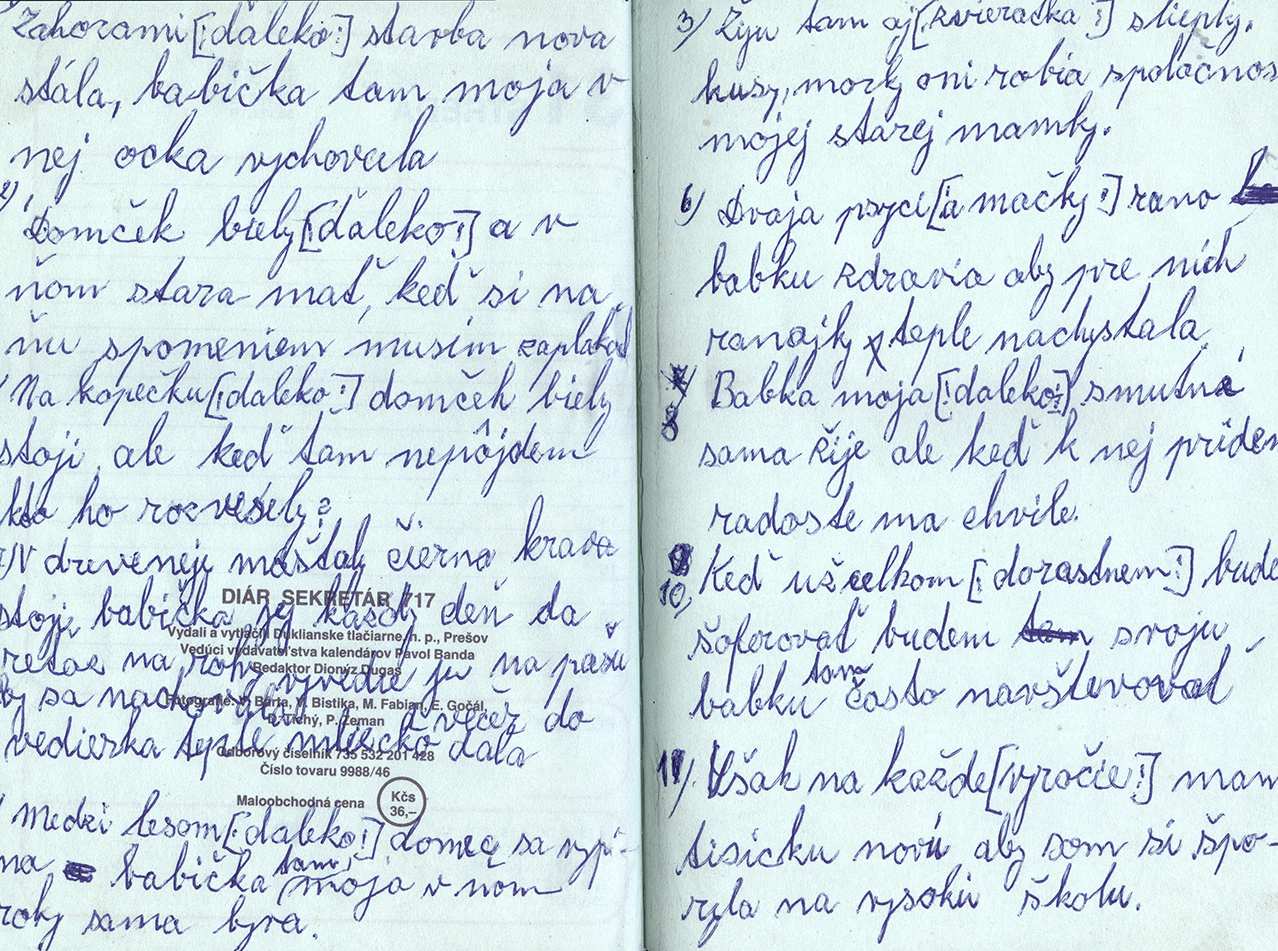 Zahorami [:ďaleko:] stavba nova
stála, babička tam moja v
nej ocka vychovala
2) Domček biely [:ďaleko:] a v
ňom stara mať, keď si na
ňu spomeniem musím zaplakať
Na kopečku [:ďaleko:] domček biely
stoji ale keď tam nepôjdem
kto ho rozvesely?
V drevenej maštaly čierna krava
stoji, babička jej každy deň da
retaz na rohy, vyvedie ju na pašu
by sa nachovala a večer do
vedierka teple mliečko dala
DIÁR SEKRETÁR 717
Vydali a vytlačili Duklianske tlačiarne, n. p., Prešov
Vedúci vydavateľstva kalendárov Pavol Banda
Redaktor Dionýz Dugas
Fotografie: V. Bárta, V. Bistika, M. Fabian, E. Gočál,
D. Tichý, P. Zeman
Odborový číselník 735 532 201 428
Číslo tovaru 9988/46
Maloobchodná cena
Kčs
36,–
Medzi lesom [:ďaleko:] domec sa vypí-
na babička tam moja v nom
roky sama byva.
3) Žiju tam aj [zvieračka:] sliepky,
kusy, morky oni robia spoločnos
mojej starej mamky.
6) Dvaja psyci [:a mačky:] rano
babku zdravia aby pre nich
ranajky teple nachystala
8 Babka moja [:daleko:] smutná
sama žije ale keď k nej prídem
radoste ma chvile.
10, Keď už celkom [:dorastnem:] bude
šoferovať budem svoju
babku tam často navštevovať
11) Však na každe [:vyročie:] mam
tisicku novú aby som si špo-
ryla na vysokú školu.